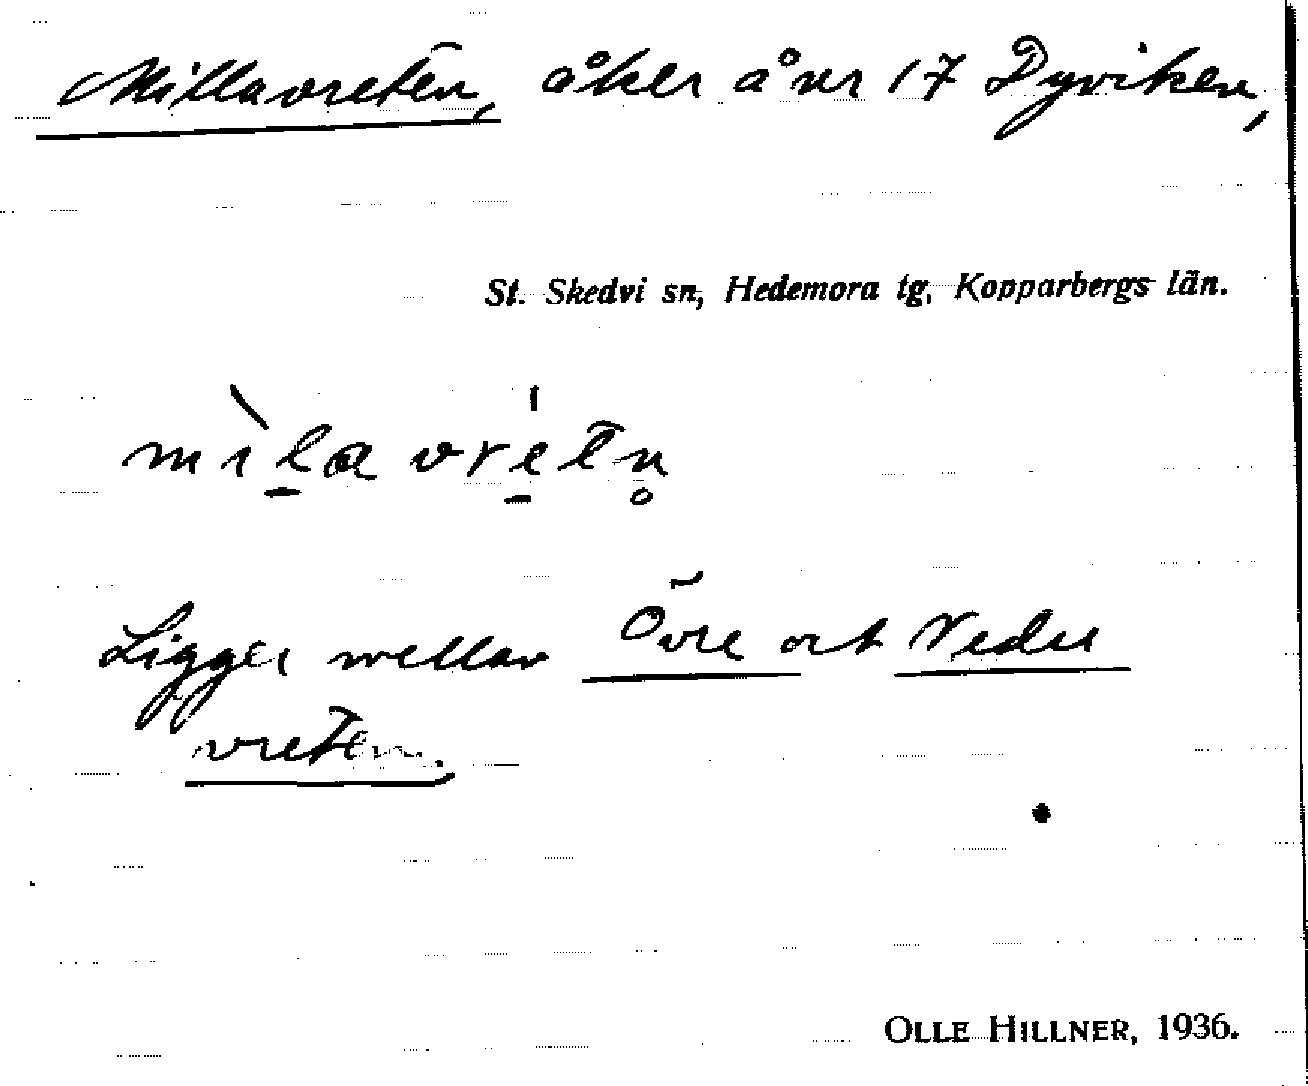 Millavreten, åker å nr 17 Dyviken,
St. Skedvi sn, Hedemora tg, Kopparbergs län.
mìlavretn̥
Ligger mellan Övre och Neder
vreten.
OLLE HILLNER, 1936.